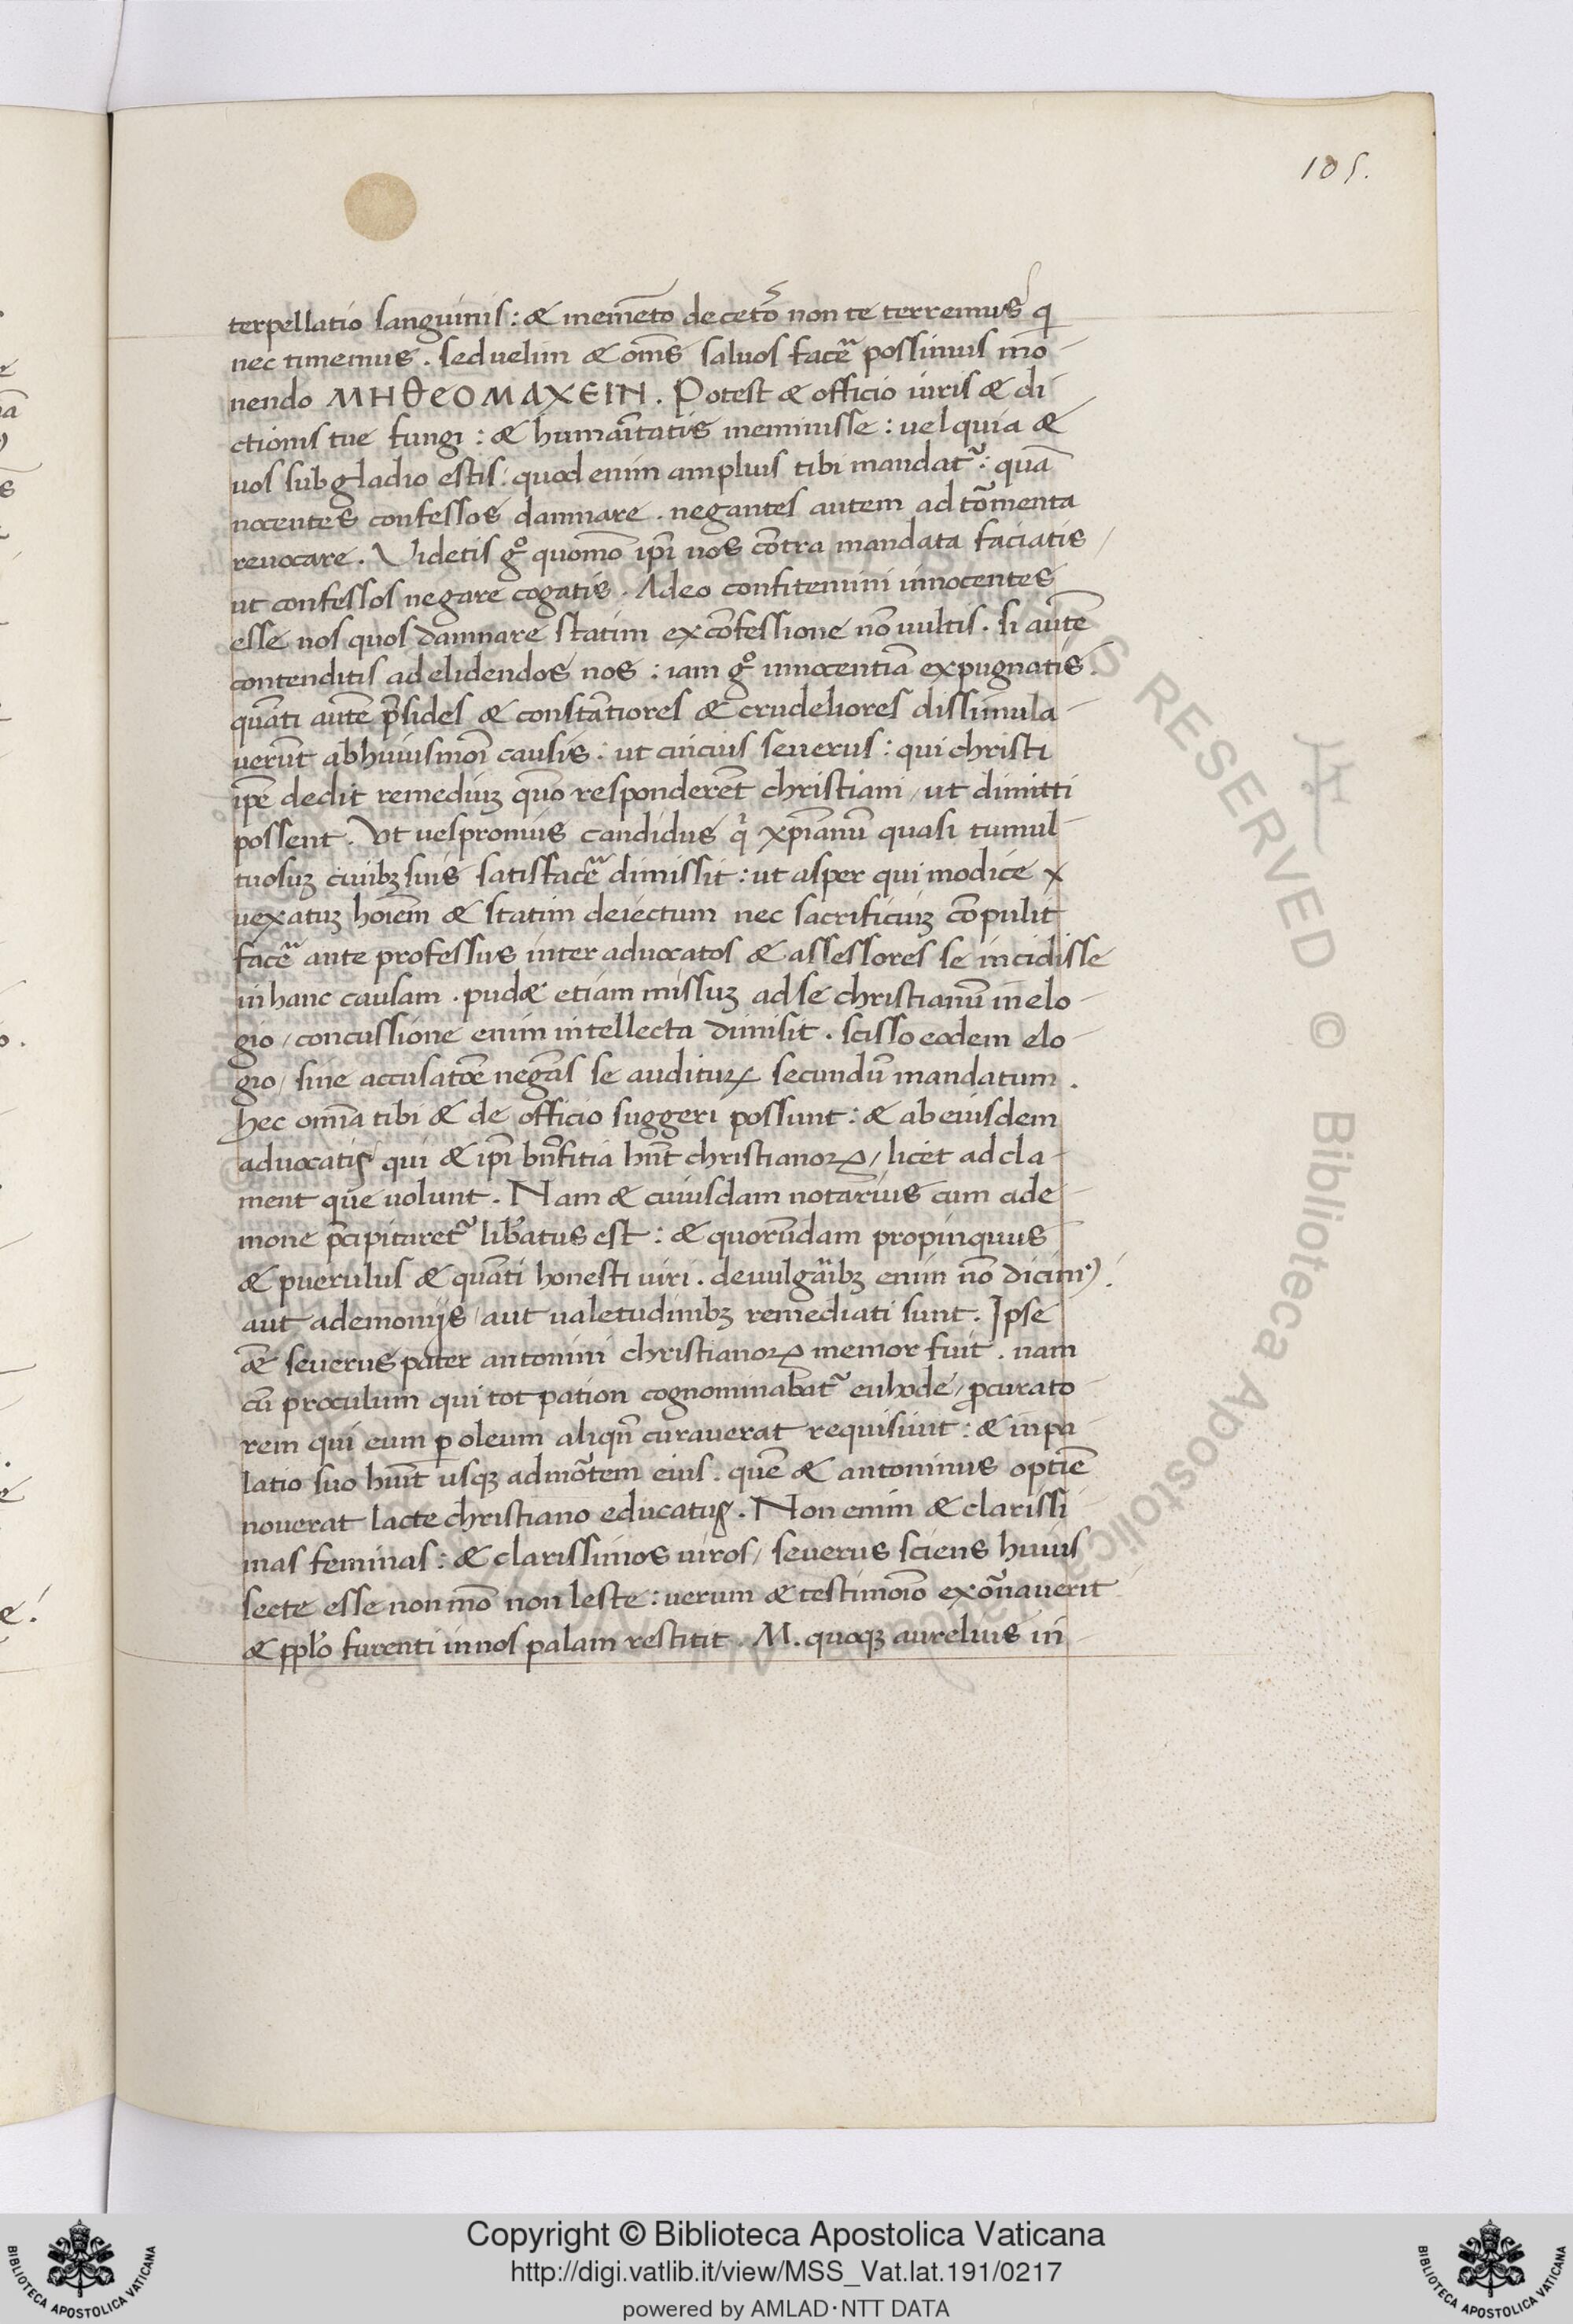 105.
terpellatio sanguinis: & memẽto de cetõ non te terremus q
nec timemus. sed velim & oms̃ saluos facẽ possimus mo
nendo ΜΗ ΘΕΟΜΑΧΕΙΝ. Potest & officio iuris & di
ctionis tue fungi: & humaĩtatis meminisse: vel quia &
uos sub gladio estis: quod enim amplius tibi mandat᷑: quã
nocentes confessos damnare. negantes autem ad tõmenta
reuocare. Videtis gͦ quomõ ipĩ uos cõtra mandata faciatis /
ut confessos negare cogatis. Adeo confitemini innocentes
esse nos quos damnare statim ex cõfessione nõ uultis. si autẽ
contenditis ad elidendos nos: iam gͦ innocentiã expugnatis.
quãti autẽ p̃sides & constãtiores & crudeliores dissimula
uerũt ab huiusmõi causis: ut cincius seuerus: qui christi
ipẽ dedit remediuꝫ quõ responderẽt christiani / ut dimitti
possent. Vt uespronius candidus q̇ xp̃ianũ quasi tumul
tuosuꝫ ciuibꝫ suis satisfacẽ dimissit: ut asper qui modice x
uexatuꝫ hoiẽm & statim deiectum nec sacrificiuꝫ cõpulit
facẽ ante professus inter aduocatos & assessores se incidisse
in hanc causam. pud& etiam missuꝫ ad se christianũ in elo
gio / concussione enim intellecta dimisit. scisso eodem elo
gio / sine accusatõe negãs se audituꝝ secundũ mandatum.
hec omĩa tibi & de officio suggeri possunt: & ab eiusdem
aduocatis qui & ipĩ bñfitia hñt christianoꝝ / licet adcla
ment que uolunt. Nam & cuiusdam notarius cum ade
mone p̃cipitaret᷑ libatus est: & quorũdam propinquus
& puerulus & quãti honesti uiri. de uulgãibꝫ enim nõ dicimꝰ.
aut ademonijs / aut ualetudinibꝫ remediati sunt. Ipse
& seuerus pater antonini christianoꝝ memor fuit. nam
cũ proculum qui tot pation cognominabat᷑ euhode / ꝓcurato
rem qui eum ꝑ oleum aliqñ curauerat requisiuit: & in pa
latio suo huĩt usqꝫ ad mõtem eius. quẽ & antoninus optĩe
nouerat lacte christiano educatus. Non enim & clarissi
mas feminas: & clarissimos uiros / seuerus sciens huius
secte esse non mõ non leste: verum & testimoĩo exõnauerit
& pplõ furenti in nos palam restitit. M. quoqꝫ aurelius in
ALL RIGHTS RESERVED © Biblioteca Apostolica
Copyright © Biblioteca Apostolica Vaticana
http://digi.vatlib.it/view/MSS_Vat.lat.191/0217
powered by AMLAD·NTT DATA
BIBLIOTECA APOSTOLICA VATICANA
BIBLIOTECA APOSTOLICA VATICANA